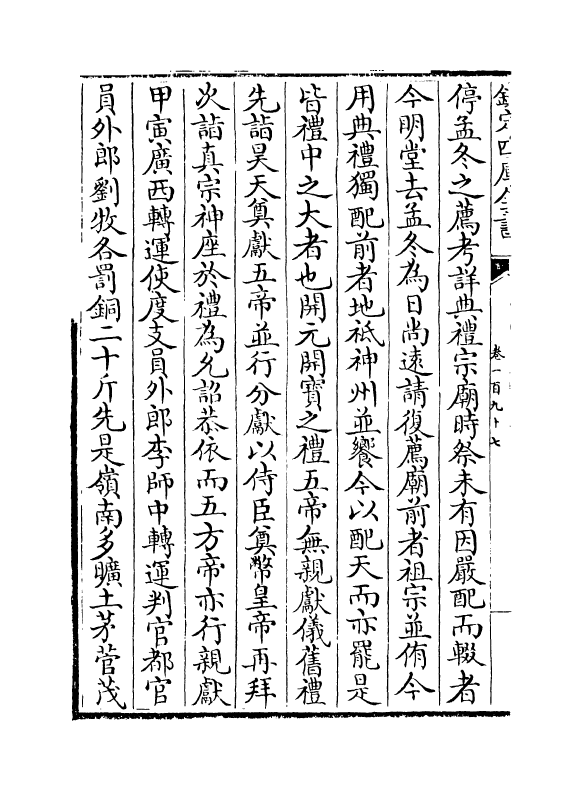 欽定四庫全書
卷一百九十七
停孟冬之薦考詳典禮宗廟時祭未有因嚴配而輟者
今明堂去孟冬為日尚遠請復薦廟前者祖宗並侑今
用典禮獨配前者地祗神州並饗今以配天而亦罷是
皆禮中之大者也開元開寳之禮五帝無親獻儀舊禮
先詣昊天奠獻五帝並行分獻以侍臣奠幣皇帝再拜
次詣真宗神座於禮為允詔恭依而五方帝亦行親獻
甲寅廣西轉運使度支員外郎李師中轉運判官都官
員外郎劉牧各罰銅二十斤先是嶺南多曠土茅菅茂